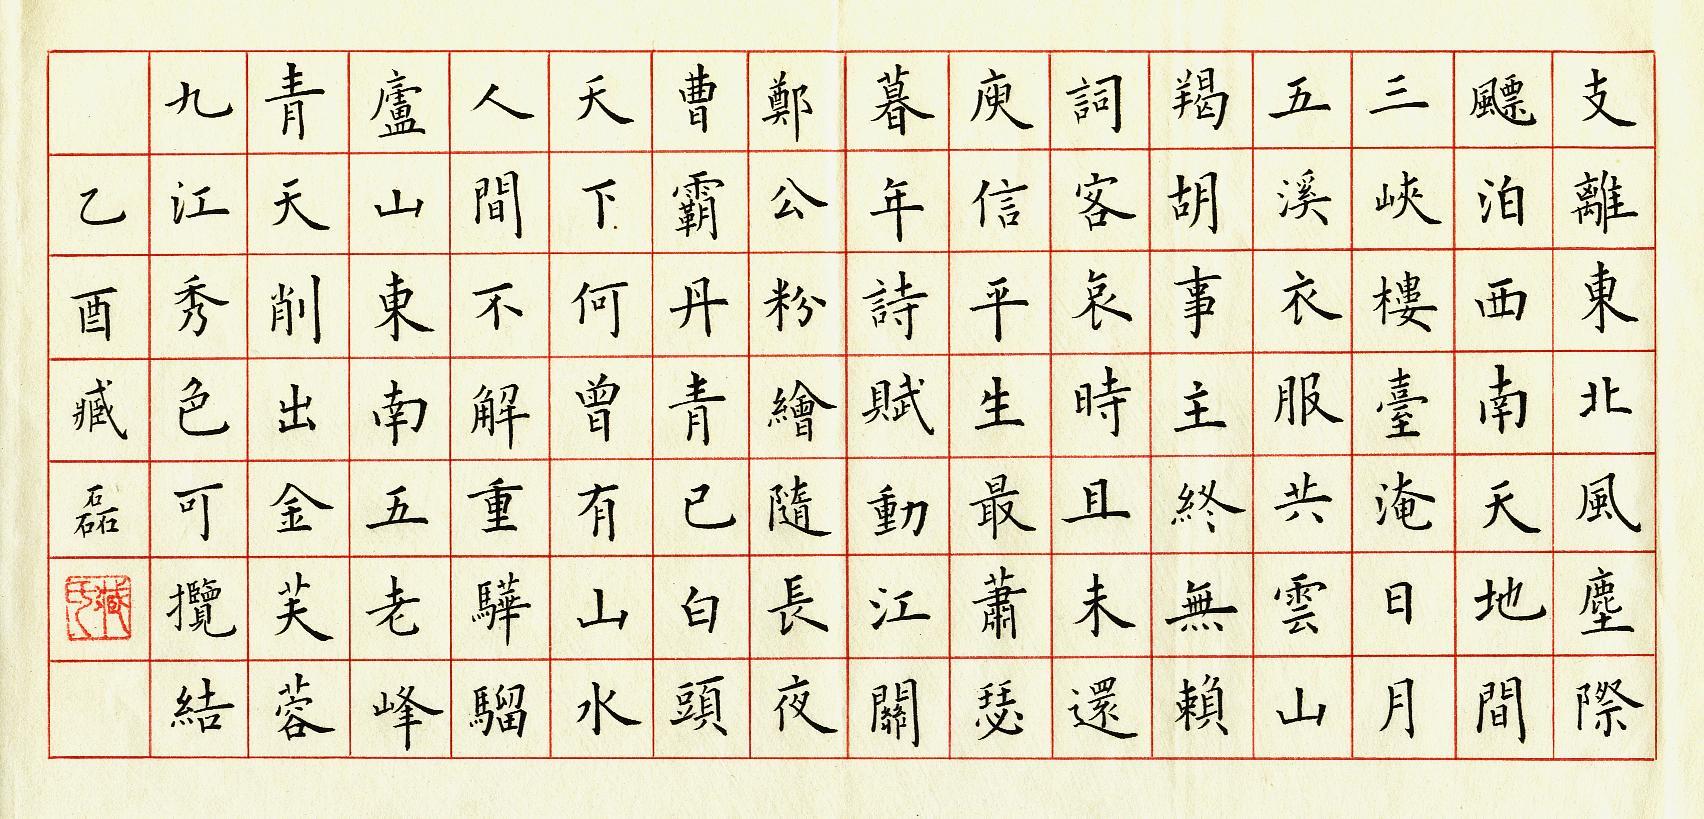 支離東北風塵際
飃泊西南天地間
三峽樓臺淹日月
五溪衣服共雲山
羯胡事主終無賴
詞客哀時且未還
庾信平生最蕭瑟
暮年詩賦動江關
鄭公粉繪隨長夜
曹霸丹青已白頭
天下何曾有山水
人間不解重驊騮
廬山東南五老峰
青天削出金芙蓉
九江秀色可攬結
乙酉臧磊